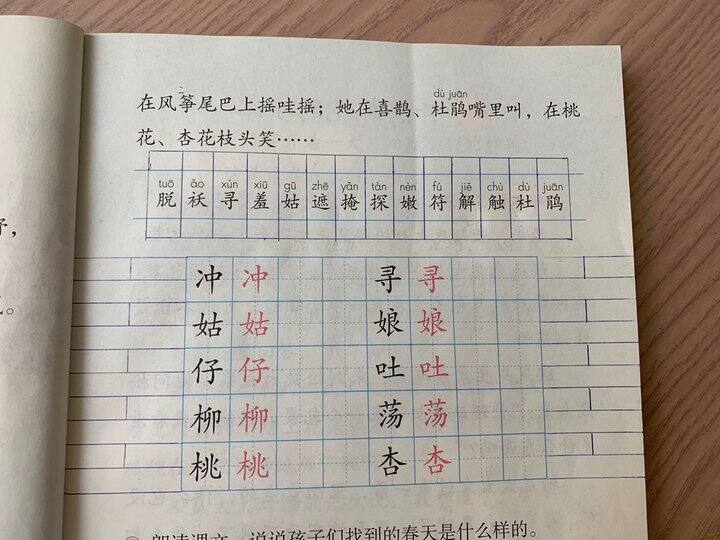 dù juān
在风筝尾巴上摇哇摇；她在喜鹊、杜鹃嘴里叫，在桃
花、杏花枝头笑……
tuō ǎo xún xiū gū zhē yǎn tàn nèn fú jiě chù dù juān
脱 袄 寻 羞 姑 遮 掩 探 嫩 符 解 触 杜 鹃
冲 冲 寻 寻
姑 姑 娘 娘
仔 仔 吐 吐
柳 柳 荡 荡
桃 桃 杏 杏
朗读课文，说说孩子们找到的春天是什么样的。